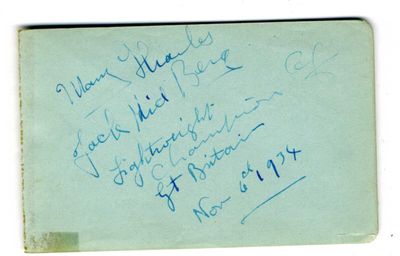 Many Thanks
Jack Kid Berg
Lightweight
Champion of
Gt Britain
Nov 6th 1934